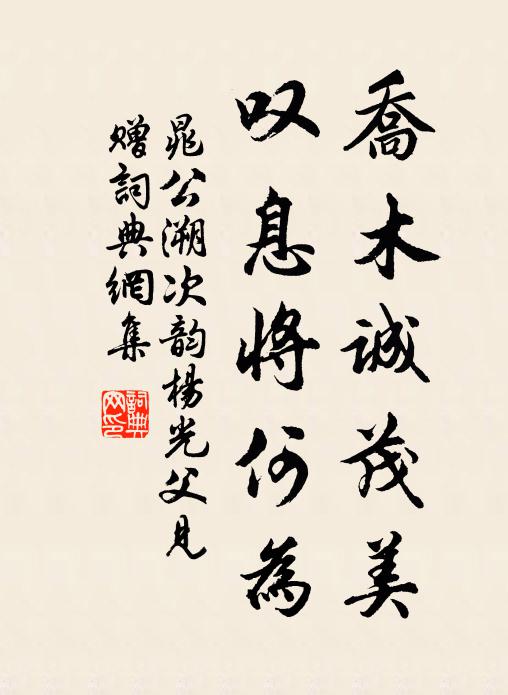 喬木誠茂美
叹息将何為
晁公溯次韵楊光父見
贈詞典網集
詞典
网印